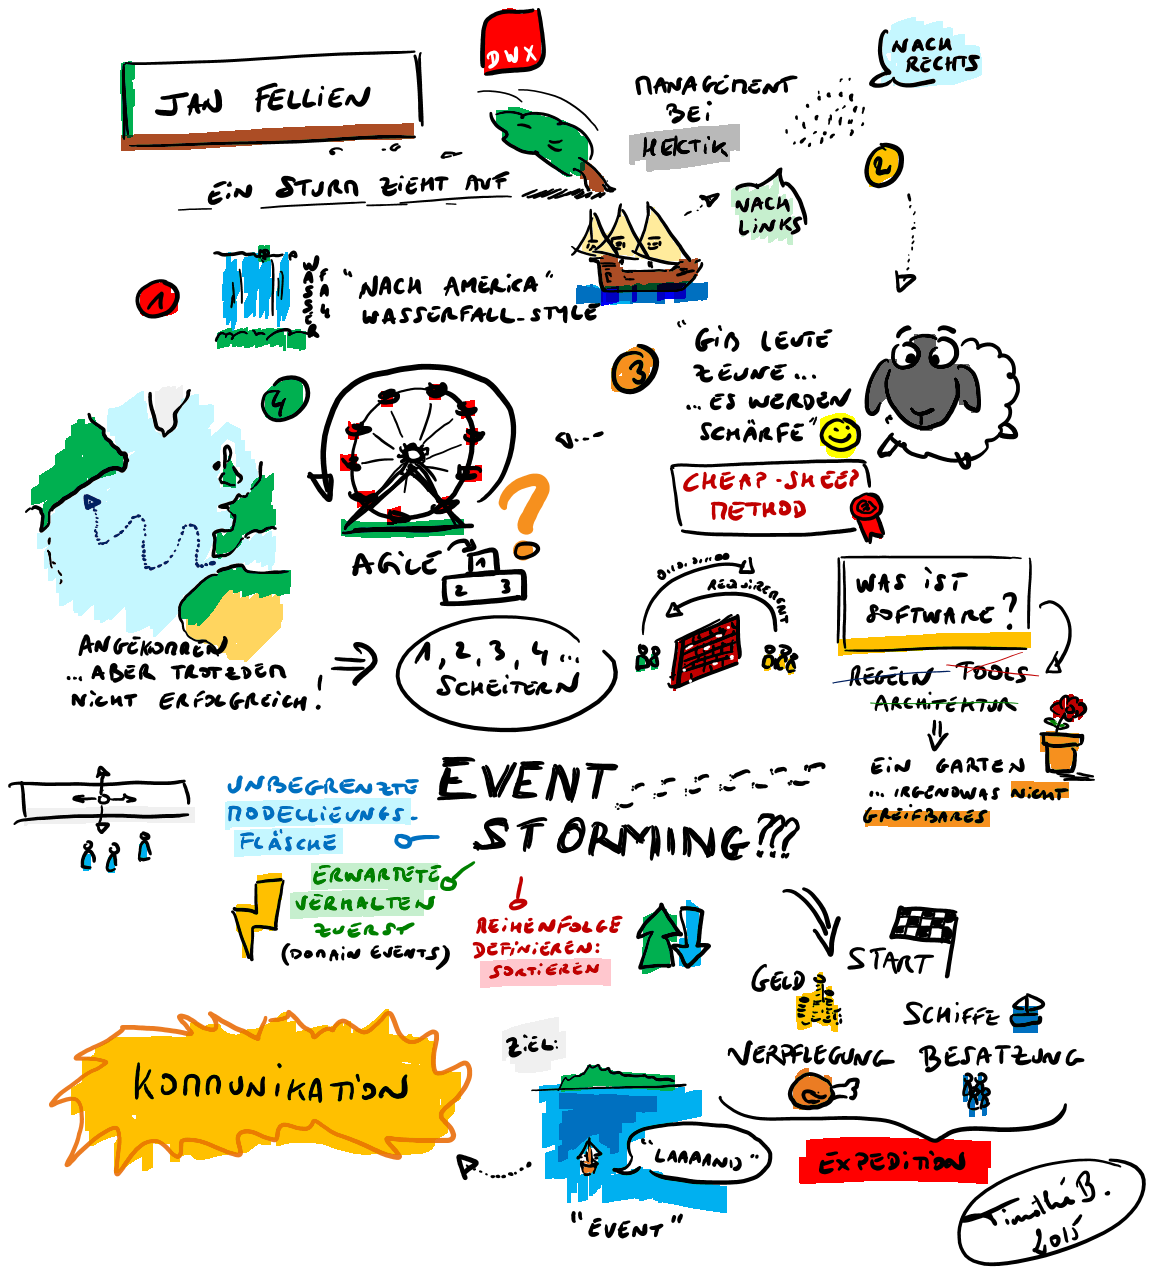 DWX
JAN FELLIEN
EIN STURM ZIEHT AUF
MANAGEMENT
BEI
HEKTIK
NACH
RECHTS
2
NACH
LINKS
1
WASSER
FALL
"NACH AMERICA"
WASSERFALL-STYLE
3
"GIB LEUTE
ZEUNE...
...ES WERDEN
SCHÄRFE"
CHEAP-SHEEP
METHOD
4
?
AGILE
1
2 3
ANGEKOMMEN
...ABER TROTZDEM
NICHT ERFOLGREICH!
1, 2, 3, 4...
SCHEITERN
REQUIREMENT
WAS IST
SOFTWARE?
REGELN TOOLS
ARCHITEKTUR
EIN GARTEN
...IRGENDWAS NICHT
GREIFBARES
EVENT
STORMING???
UNBEGRENZTE
MODELLIEUNGS-
FLÄSCHE
ERWARTETE
VERHALTEN
ZUERST
(DOMAIN EVENTS)
REIHENFOLGE
DEFINIEREN:
SORTIEREN
START
GELD
SCHIFFE
VERPFLEGUNG BESATZUNG
EXPEDITION
ZIEL:
"LAAAAND"
"EVENT"
KOMMUNIKATION
Timothé B.
2015